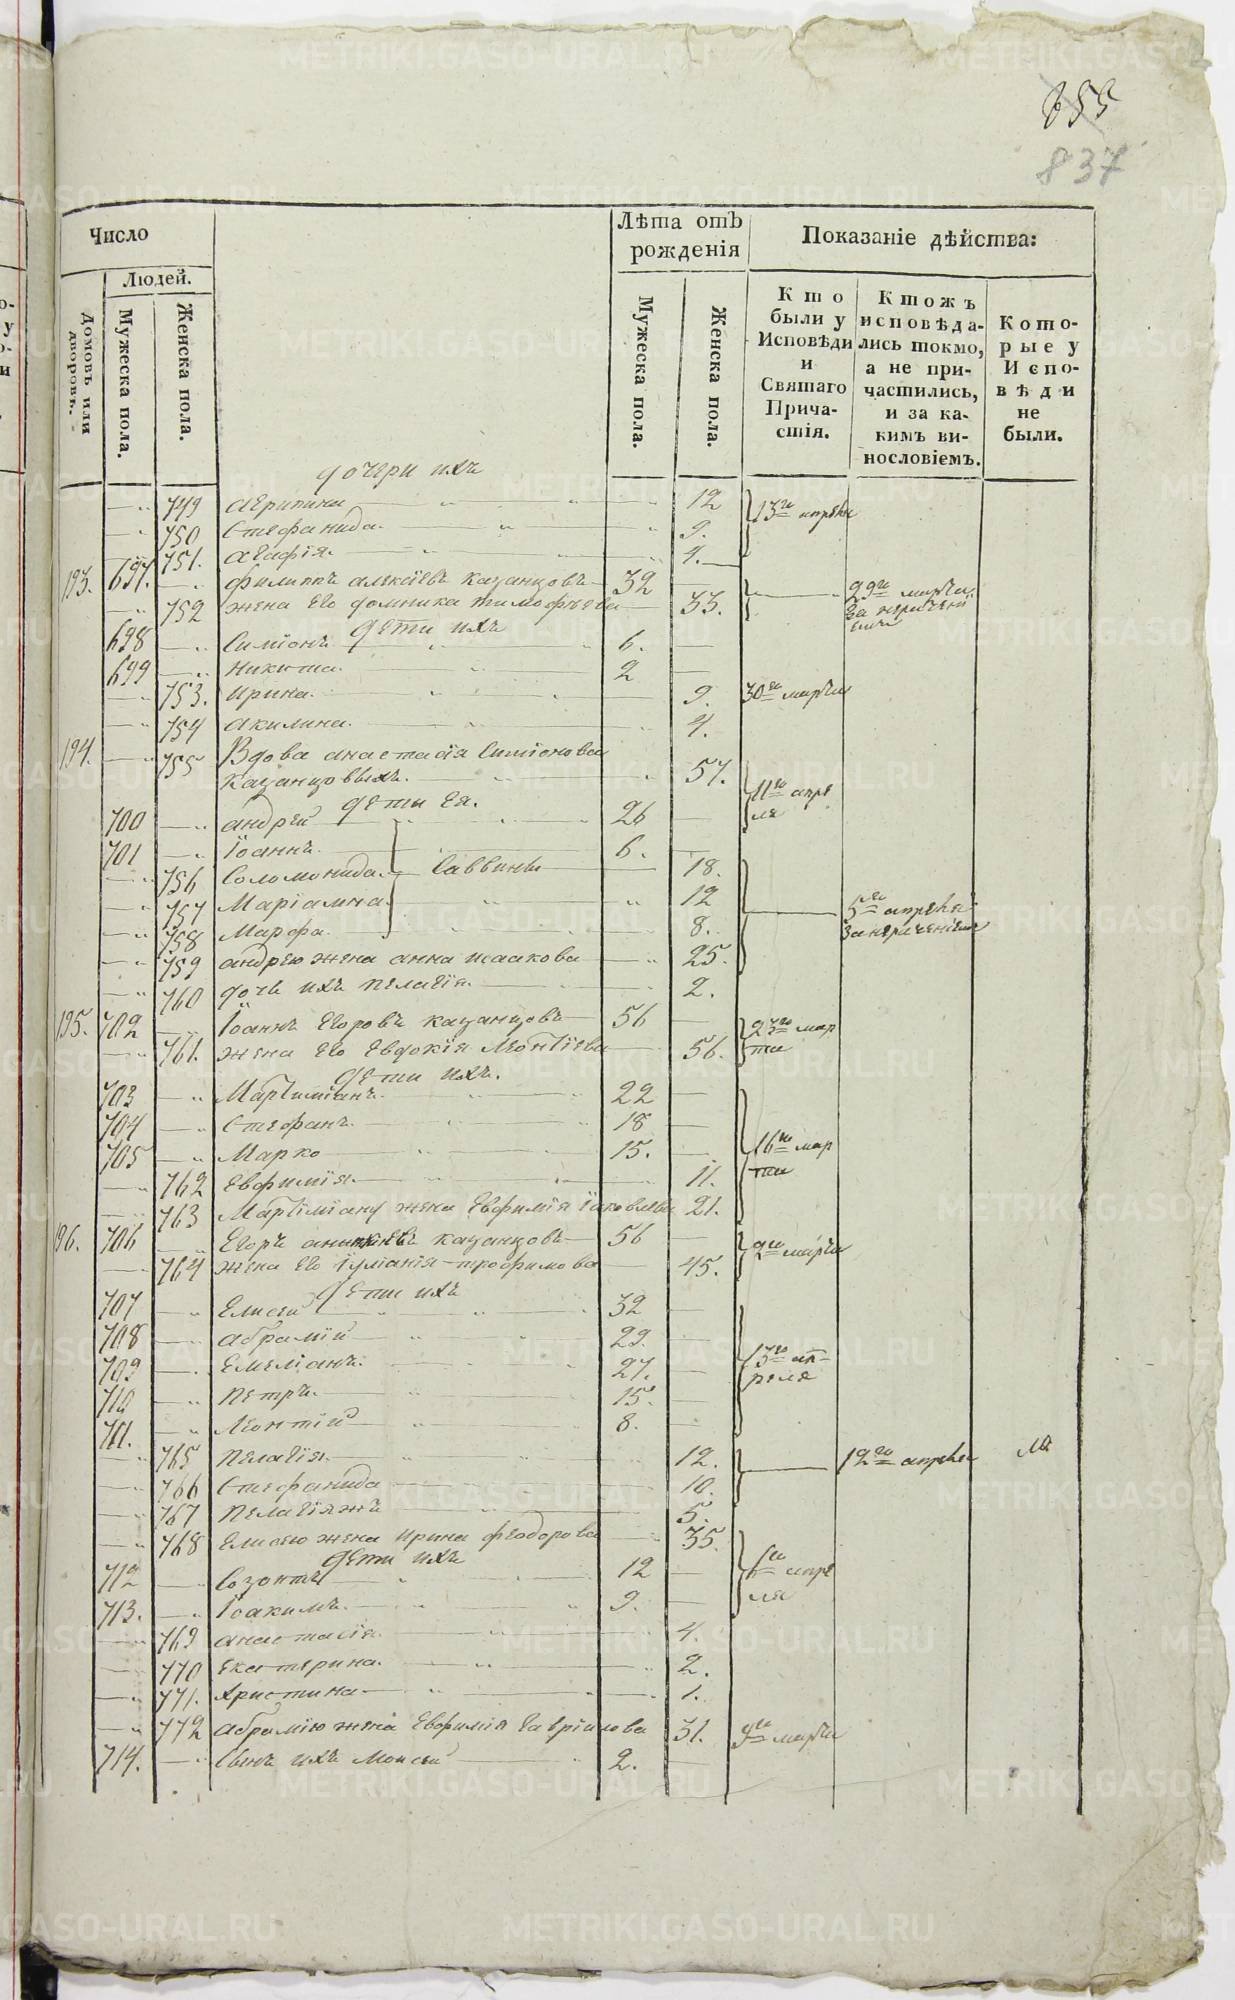 855
837
Число
Людей.
Домовъ или дворовъ.
Мужеска пола.
Женска пола.
Лѣта отъ рожденія
Мужеска пола.
Женска пола.
Показаніе дѣйства:
Кто были у Исповѣди и Святаго Прича-стія.
Ктожъ исповѣда-лись токмо, а не при-частились, и за ка-кимъ ви-нословіемъ.
Кото-рые у Испо-вѣди не были.
дочери ихъ
749 агрипина 12 13го апрѣля
750 Стефанида 9.
751. агафія. 4.
193. 697. филиппъ алексіевъ казанцовъ 32 29го марта,
752 жена его домника тимофѣева 33. за нераченіемъ
дѣти ихъ
698 Симіонъ 6.
699 никита. 2
753. ирина. 9. 30го марта
754 акилина. 4.
194. 755 Вдова анастасія Симіонова
казанцовыхъ. 57. 11го апре
дети ея. ля
700 андрей 26
701 Іоаннъ. 6.
756 Соломонида. Саввины 18.
757 Маріамна 12 5го апрѣля
758 Марфа. 8. за нераченіемъ
759 андрею жена анна исаакова 25.
760 дочь ихъ пелагія. 2.
195. 702 Іоаннъ Егоровъ казанцовъ 56 23го мар
761. жена его евдокія Леонтіева 56. та
дети ихъ.
703 Мартиміанъ. 22
704 Стефанъ. 18
705 Марко 15. 16го мар
762 Евфимія. 11. та
763 Мартіміану жена Евфимія Іаковлева 21.
196. 706 Егоръ казанцовъ 56 9го марта
764 жена его Іуліанія трофимова 45.
дети ихъ
707 Елисей 32
708 абрамій 29.
709 Емеліанъ. 27. 13го ап-
710 петръ. 15. реля
711. Леонтій 8.
765 пелагія. 12. 12го апрѣля
766 Стефанида 10.
767 пелагіяжъ 5.
768 Елисею жена ирина феодорова 35.
дети ихъ
712 Созонтъ 12 6го апре
713. Іоакимъ. 9. ля
769 анастасія. 4.
770 екатерина. 2.
771. христина 1.
772 абрамію жена Евфимія гавріилова 31. 9го марта
714. Сынъ ихъ Моисей 2.
METRIKI.GASO-URAL.RU